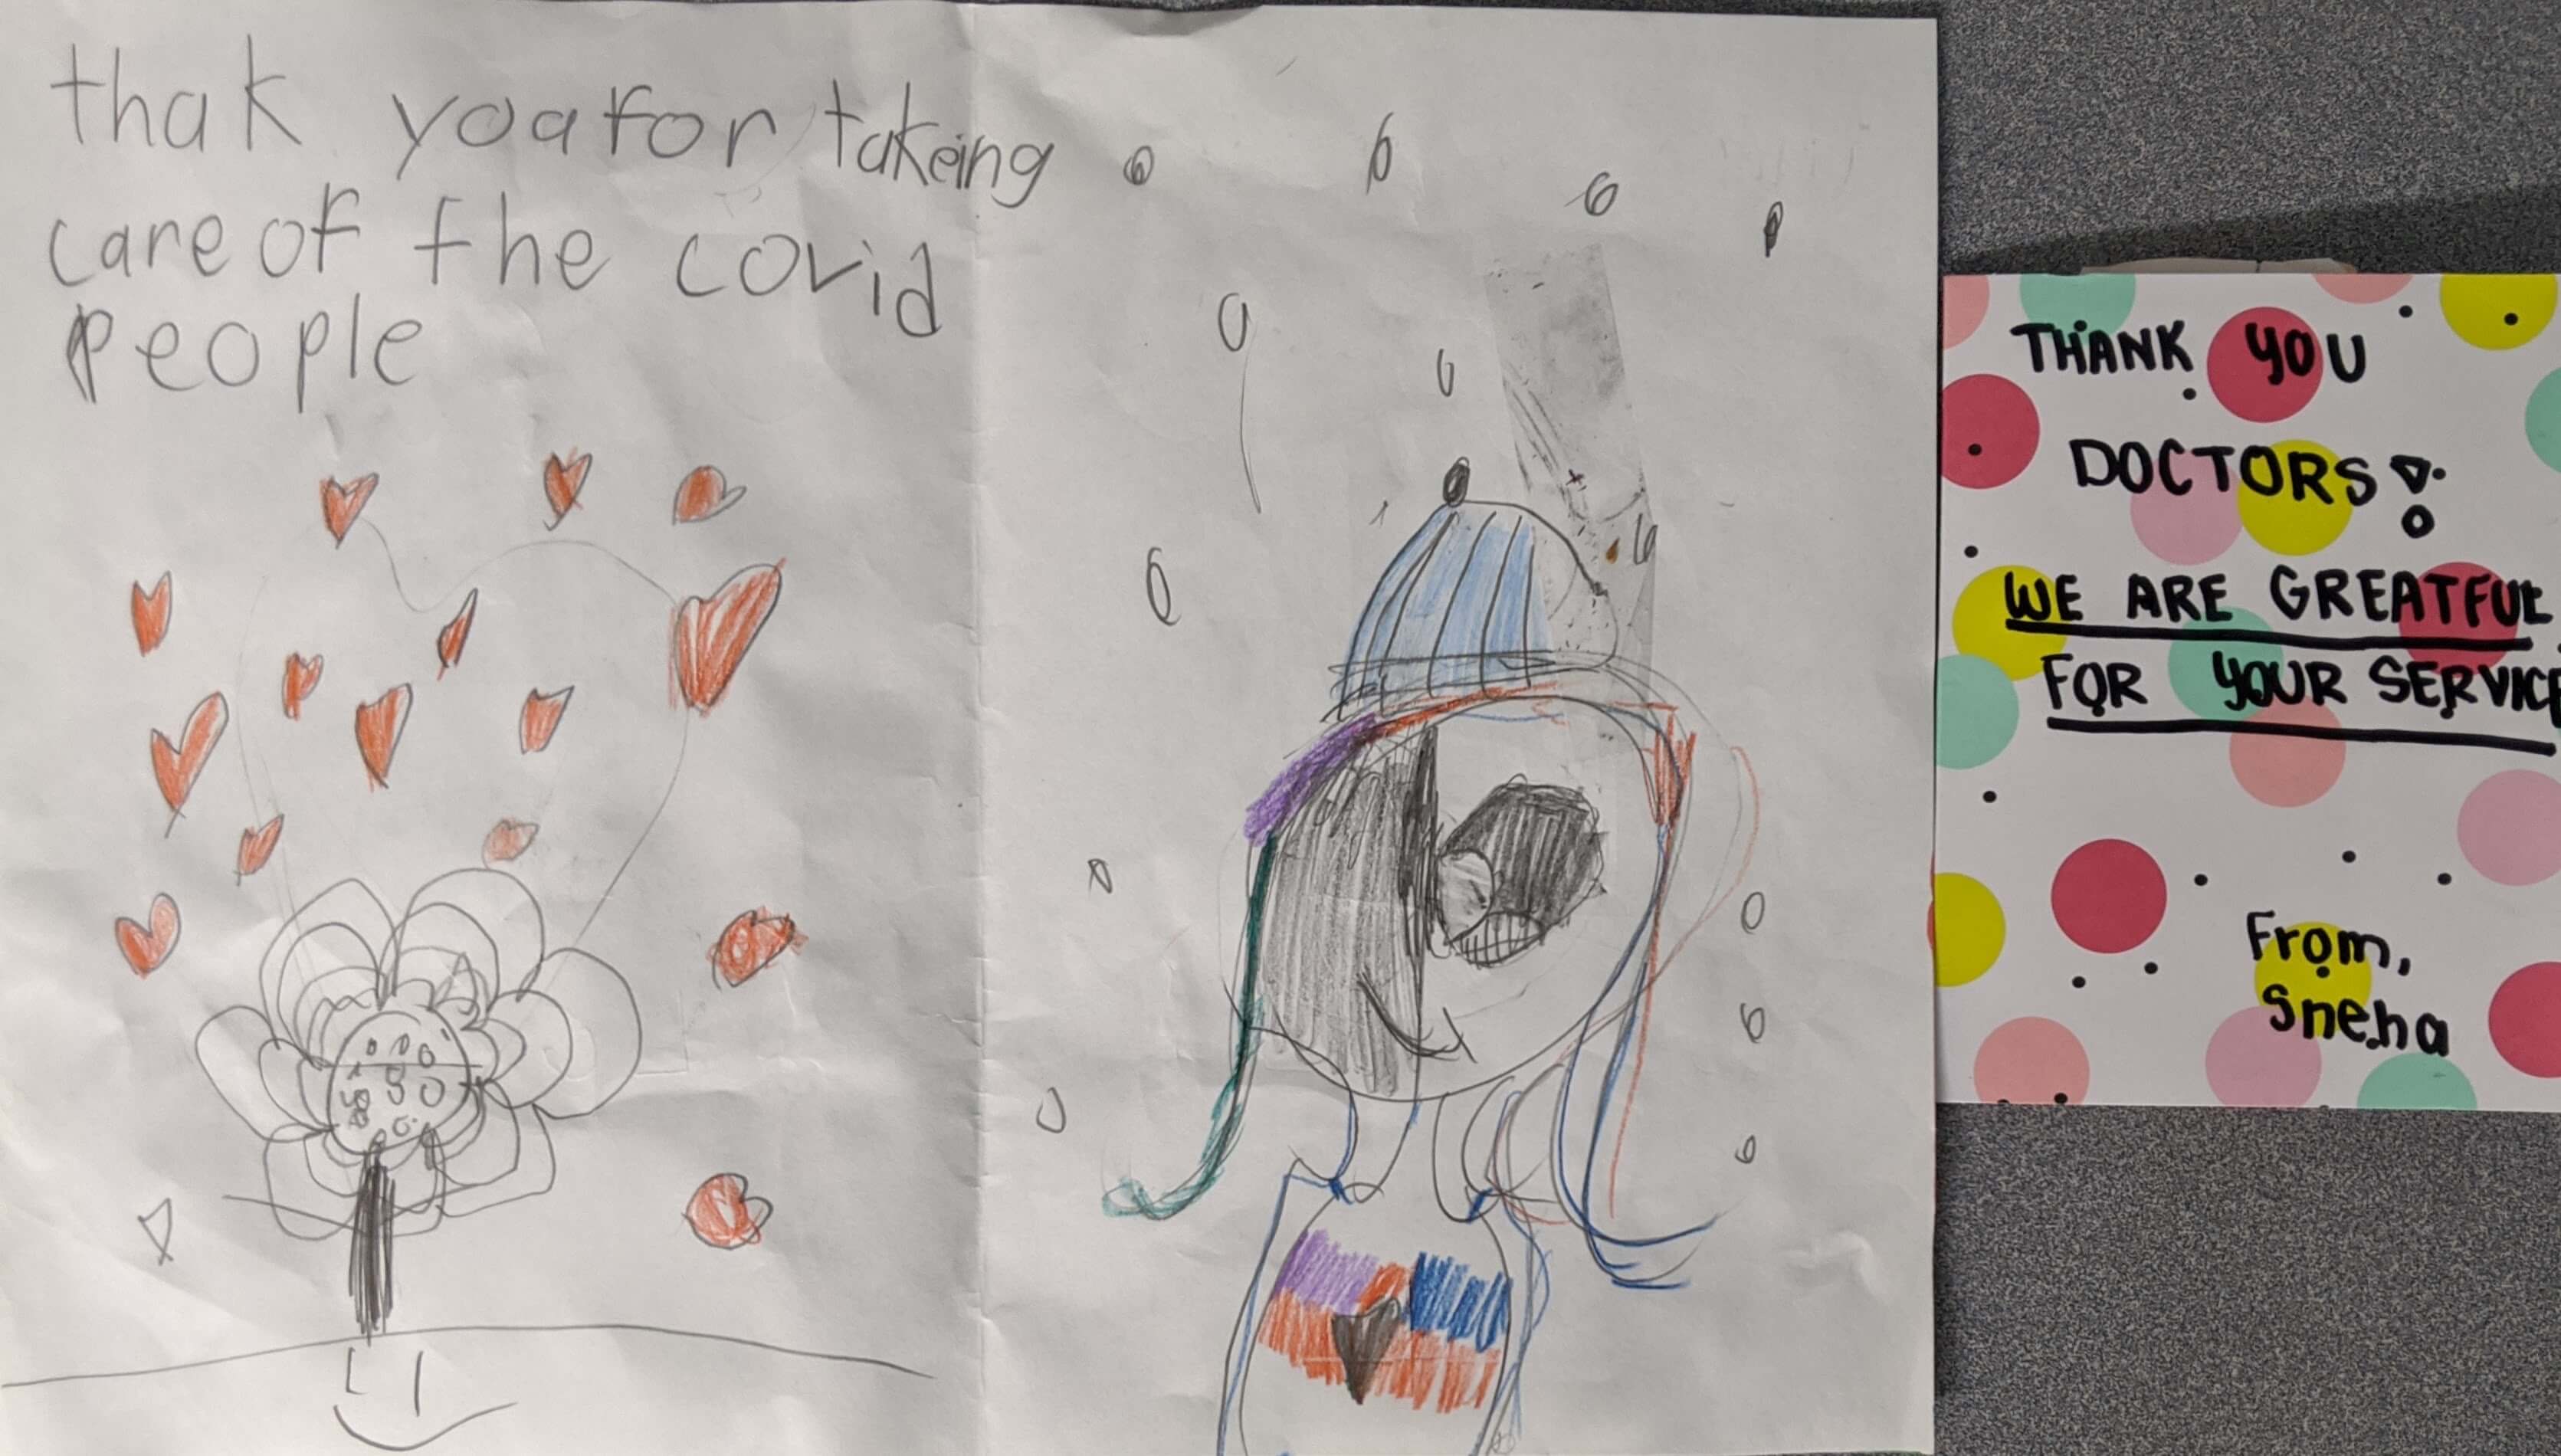 thak yoa for takeing
care of the covid
people
THANK YOU
DOCTORS!
WE ARE GREATFUL
FOR YOUR SERVICE
From,
Sneha